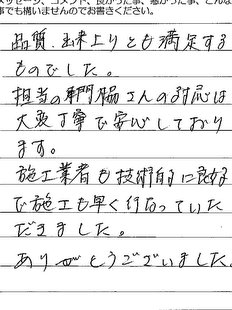 メッセージ、コメント、良かった事、悪かった事、どんな
事でも構いませんのでお書きください。
品質、出来上りとも満足する
ものでした。
担当の専門脇さんの対応は
大変丁寧で安心しており
ます。
施工業者も技術的に良好
で施工も早く行なっていた
だきました。
ありがとうございました。